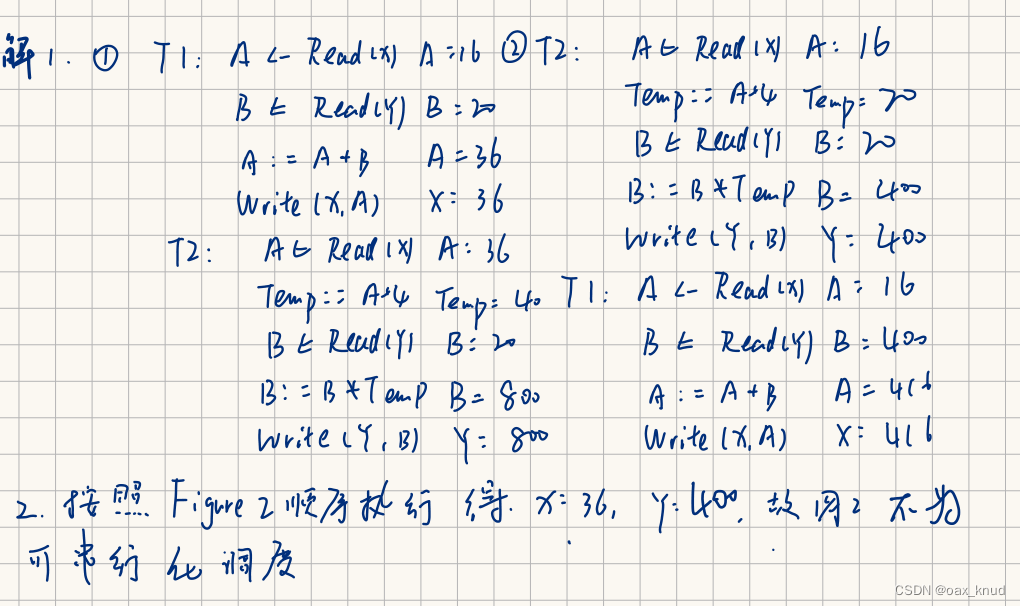 解 1. ① T1: A ← Read(X) A=16 ② T2: A ← Read(X) A: 16
B ← Read(Y) B=20 Temp:= A+4 Temp=20
A := A+B A=36 B ← Read(Y) B=20
Write(X,A) X=36 B:=B*Temp B=400
T2: A ← Read(X) A: 36 Write(Y,B) Y=400
Temp:= A+4 Temp=40 T1: A ← Read(X) A=16
B ← Read(Y) B=20 B ← Read(Y) B=400
B:=B*Temp B=800 A := A+B A=416
Write(Y,B) Y=800 Write(X,A) X=416
2. 按照 Figure 2 顺序执行 得. X=36, Y=400. 故图2 不为
可串行化调度
CSDN @oax_knud